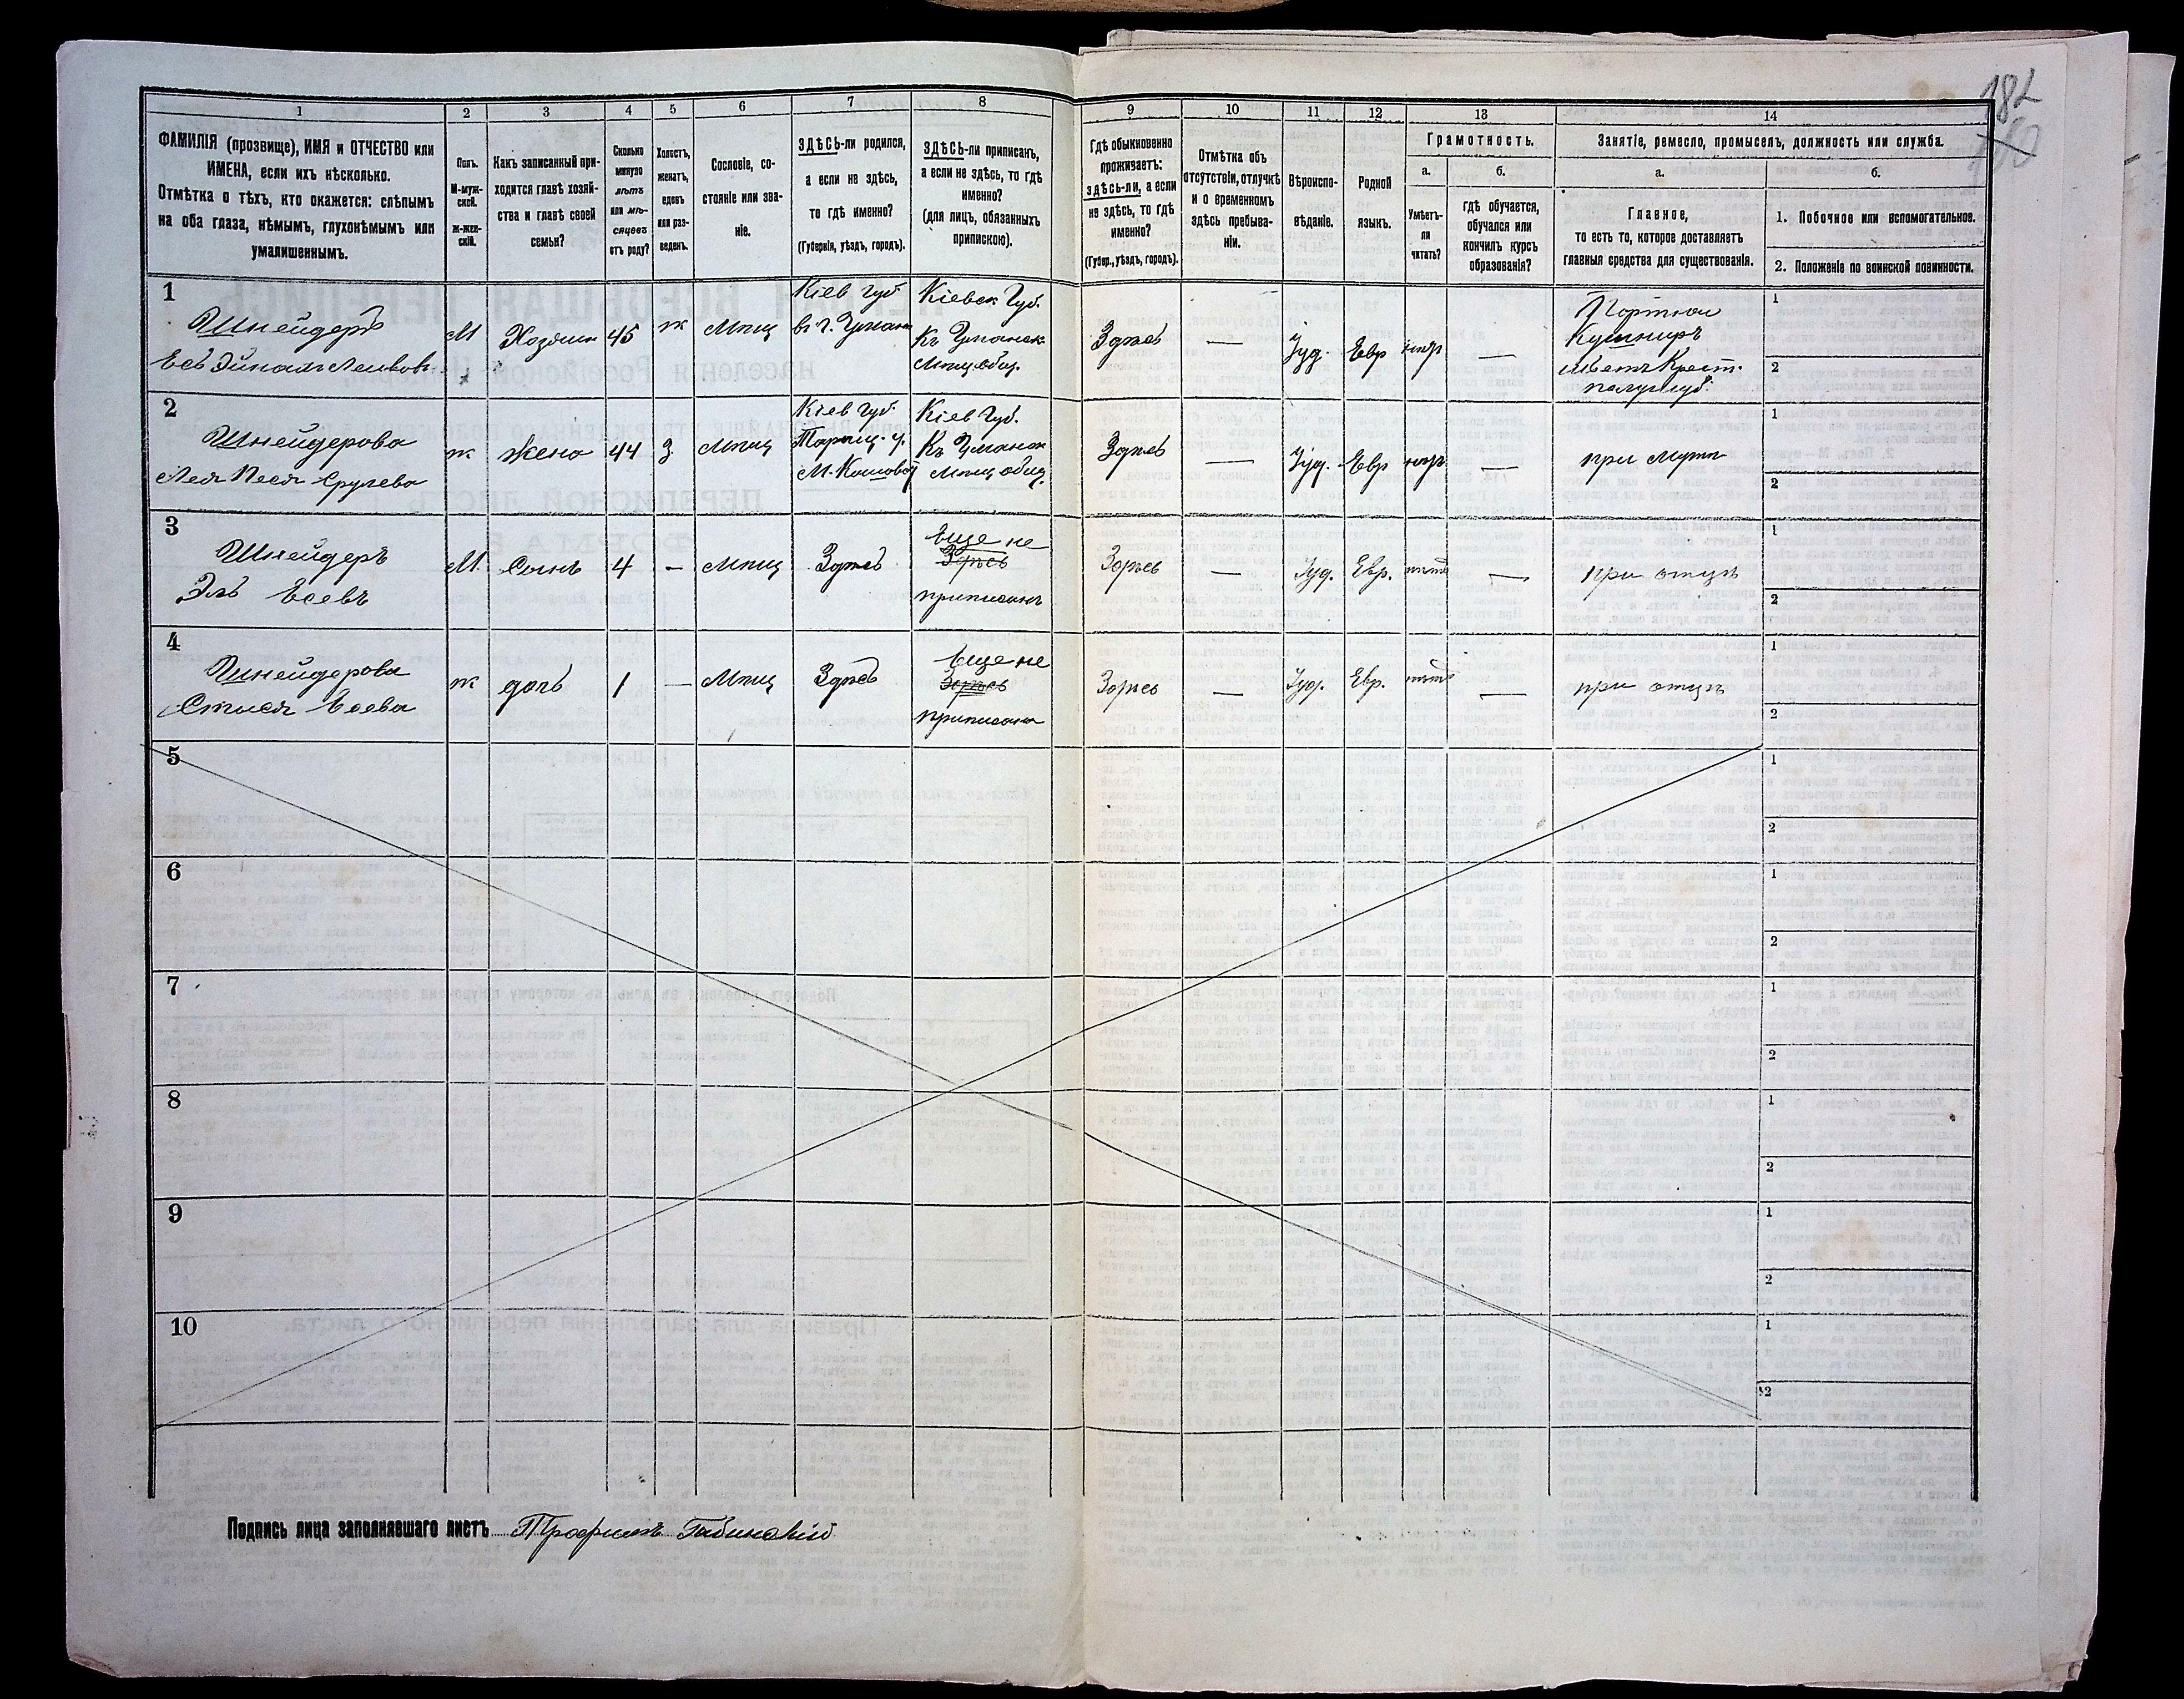 182
1
2
3
4
5
6
7
8
9
10
11
12
13
14
ФАМИЛІЯ (прозвище), ИМЯ и ОТЧЕСТВО или
ИМЕНА, если ихъ нѣсколько.
Отмѣтка о тѣхъ, кто окажется: слѣпымъ
на оба глаза, нѣмымъ, глухонѣмымъ или
умалишеннымъ.
Полъ.
М-муж-
ской.
ж-жен-
скій.
Какъ записанный при-
ходится главѣ хозяй-
ства и главѣ своей
семьи?
Сколько
минуло
лѣтъ
или мѣ-
сяцевъ
отъ роду?
Холостъ,
женатъ,
вдовъ
или раз-
веденъ.
Сословіе, со-
стояніе или зва-
ніе.
ЗДѢСЬ-ли родился,
а если не здѣсь,
то гдѣ именно?
(Губернія, уѣздъ, городъ).
ЗДѢСЬ-ли приписанъ,
а если не здѣсь, то гдѣ
именно?
(для лицъ, обязанныхъ
припискою).
Гдѣ обыкновенно
проживаетъ:
здѣсь-ли, а если
не здѣсь, то гдѣ
именно?
(Губер., уѣздъ, городъ).
Отмѣтка объ
отсутствіи, отлучкѣ
и о временномъ
здѣсь пребыва-
ніи.
Вѣроиспо-
вѣданіе.
Родной
языкъ.
Грамотность.
а.
Умѣетъ-
ли
читать?
б.
гдѣ обучается,
обучался или
кончилъ курсъ
образованія?
Занятіе, ремесло, промыселъ, должность или служба.
а.
Главное,
то есть то, которое доставляетъ
главныя средства для существованія.
б.
1. Побочное или вспомогательное.
2. Положеніе по воинской повинности.
1
Шнейдеръ
М
Хозяин
45
ж
Мѣщ
Кіев губ
в г. Умани
Кіевск Губ.
Къ Уманск.
Мѣщ. общ.
Здѣсь
—
Іуд.
Евр
—
Портной
Кушниръ
1
2
2
Шнейдерова
Лея Песя Срулева
ж
жена
44
З.
Мѣщ
Кіев губ.
Таращ. у.
Кіев Губ.
Къ Уманск
Мѣщ общ.
Здѣсь
—
Іуд.
Евр
—
при мужѣ
1
2
3
Шнейдеръ
Эль Есевъ
М.
Сынъ
4
—
Мѣщ
Здѣсь
Еще не
Здѣсь
приписанъ
Здѣсь
—
Іуд.
Евр.
—
при отцѣ
1
2
4
Шнейдерова
Есева
ж
дочь
1
—
Мѣщ
Здѣсь
Еще не
Здѣсь
приписана
Здѣсь
—
Іуд.
Евр.
—
при отцѣ
1
2
5
1
2
6
1
2
7
1
2
8
1
2
9
1
2
10
1
2
Подпись лица заполнявшаго листъ Трофимъ